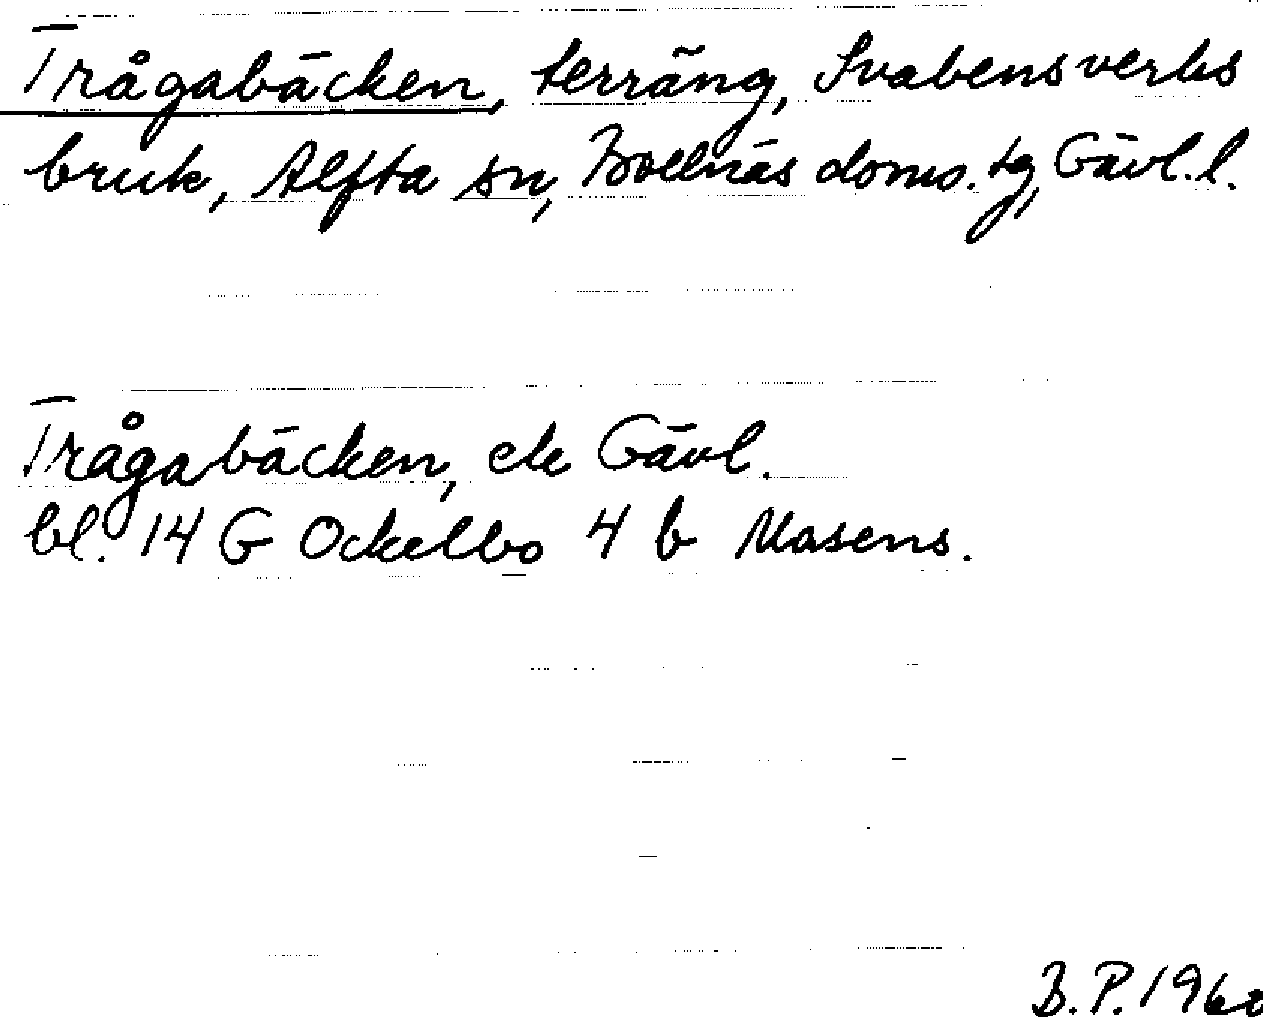 Trågabäcken, terräng, Svabensverks
bruk, Alfta sn, Bollnäs doms. tg, Gävl. l.
Trågabäcken, ek Gävl.
bl. 14 G Ockelbo 4 b Mosens.
B.P. 196